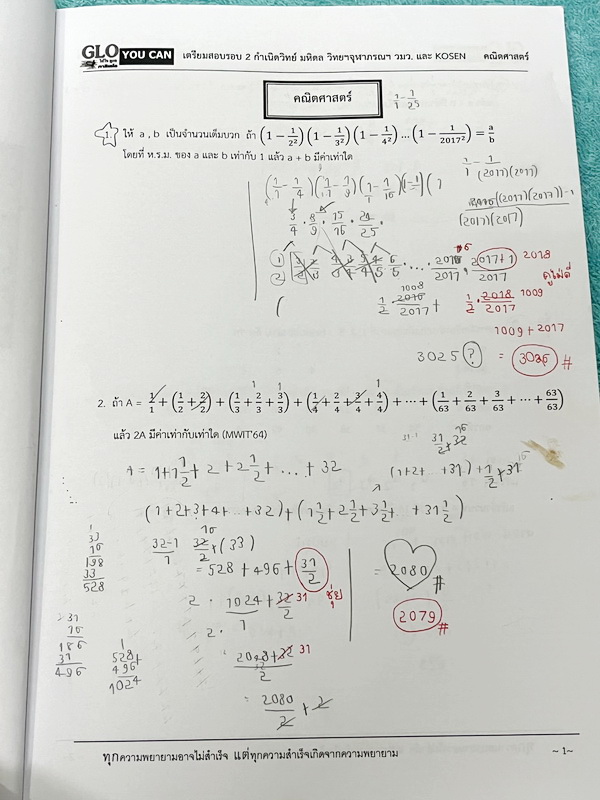 GLO YOU CAN เตรียมสอบรอบ 2 กำเนิดวิทย์ มหิดล วิทยฯจุฬาภรณฯ วมว. และ KOSEN คณิตศาสตร์
คณิตศาสตร์
1/1 - 1/25
1. ให้ a , b เป็นจำนวนเต็มบวก ถ้า (1 − 1/2²)(1 − 1/3²)(1 − 1/4²) … (1 − 1/2017²) = a/b
โดยที่ ห.ร.ม. ของ a และ b เท่ากับ 1 แล้ว a + b มีค่าเท่าใด
1/1 - 1/(2017)(2017)
(1/1 - 1/4)(1/1 - 1/9)(1/1 - 1/16)
((2017)(2017))-1
(2017)(2017)
3/4 · 8/9 · 15/16 · 24/25 ·
2017+1 2018
2017
ดูไม่ดี
1008
1/2 · 2016/2017 +
1/2 · 2018/2017 1009
1009 + 2017
3025 ?
= 3026 #
2. ถ้า A = 1/1 + (1/2 + 2/2) + (1/3 + 2/3 + 3/3) + (1/4 + 2/4 + 3/4 + 4/4) + ⋯ + (1/63 + 2/63 + 3/63 + ⋯ + 63/63)
แล้ว 2A มีค่าเท่ากับเท่าใด (MWIT'64)
A = 1+1 1/2 + 2 + 2 1/2 + ... + 32
(1+2+ ... +31) + 1/2 × 31
(1+2+3+4+ ... +32) + (1 1/2 + 2 1/2 + 3 1/2 + ... + 31 1/2)
32-1
1
16
32/2 × (33)
= 528 + 496 + 31/2
ชุ่ย
2 · 1024 + 32/2 31
1
2 ·
2048 + 32 31
2
2080/2 × 2
= 2080 #
2079 #
33
16
198
33
528
31
16
186
31
496
1
528 +
496
1024
ทุกความพยายามอาจไม่สำเร็จ แต่ทุกความสำเร็จเกิดจากความพยายาม ~ 1~